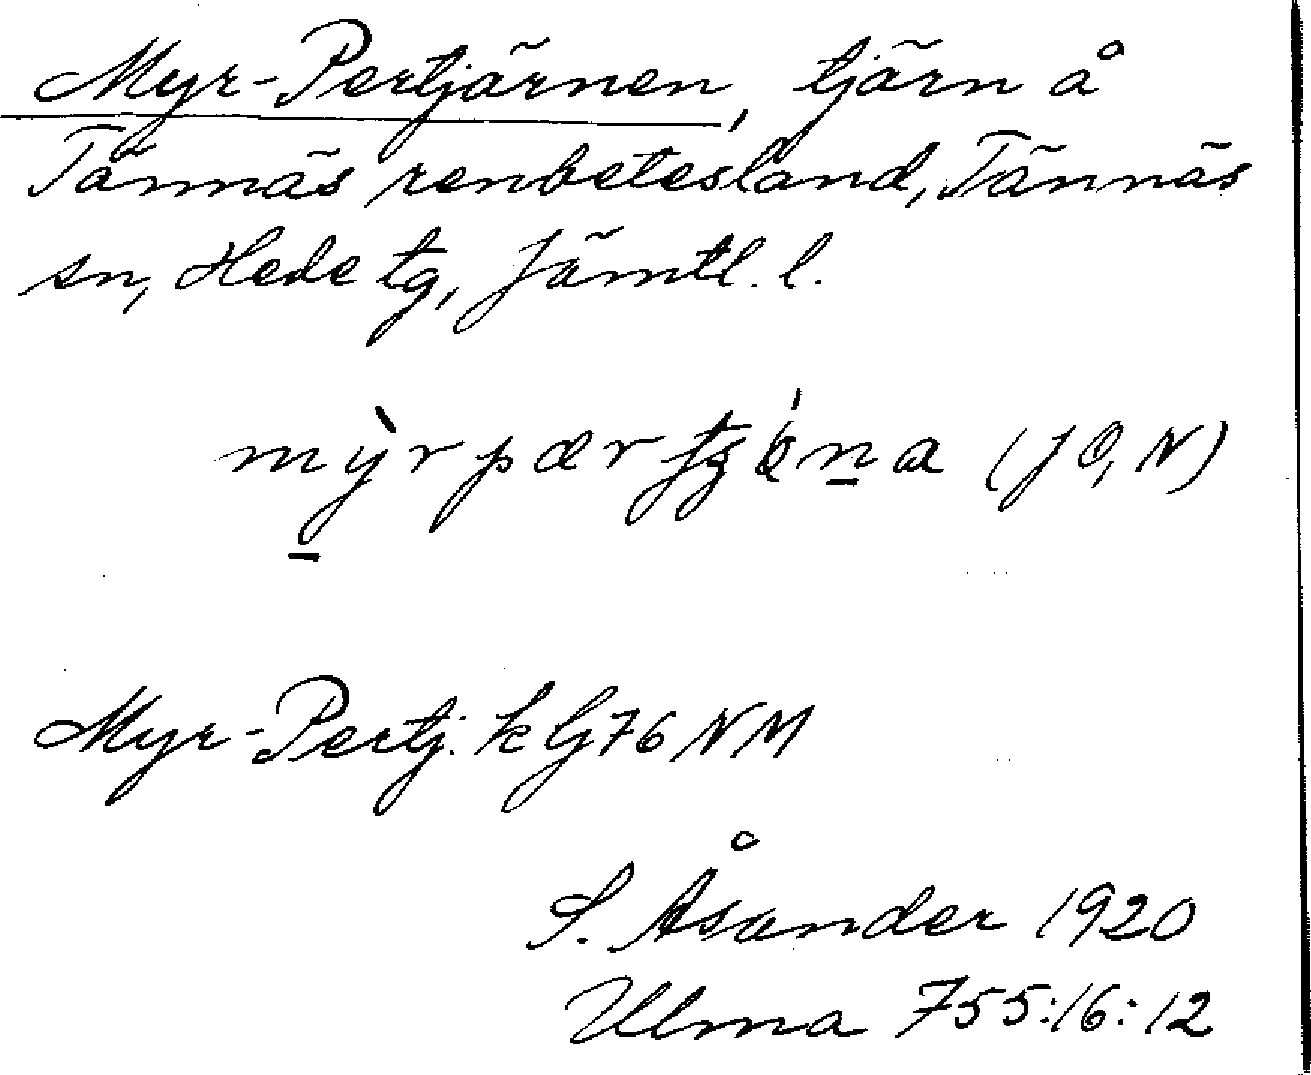 Myr-Pertjärnen, tjärn å
Tännäs renbetesland, Tännäs
sn, Hede tg, Jämtl. l.
(JO, N)
Myr-Pertj. k Gj 76 NM
S. Åsander 1920
Ulma 755:16:12